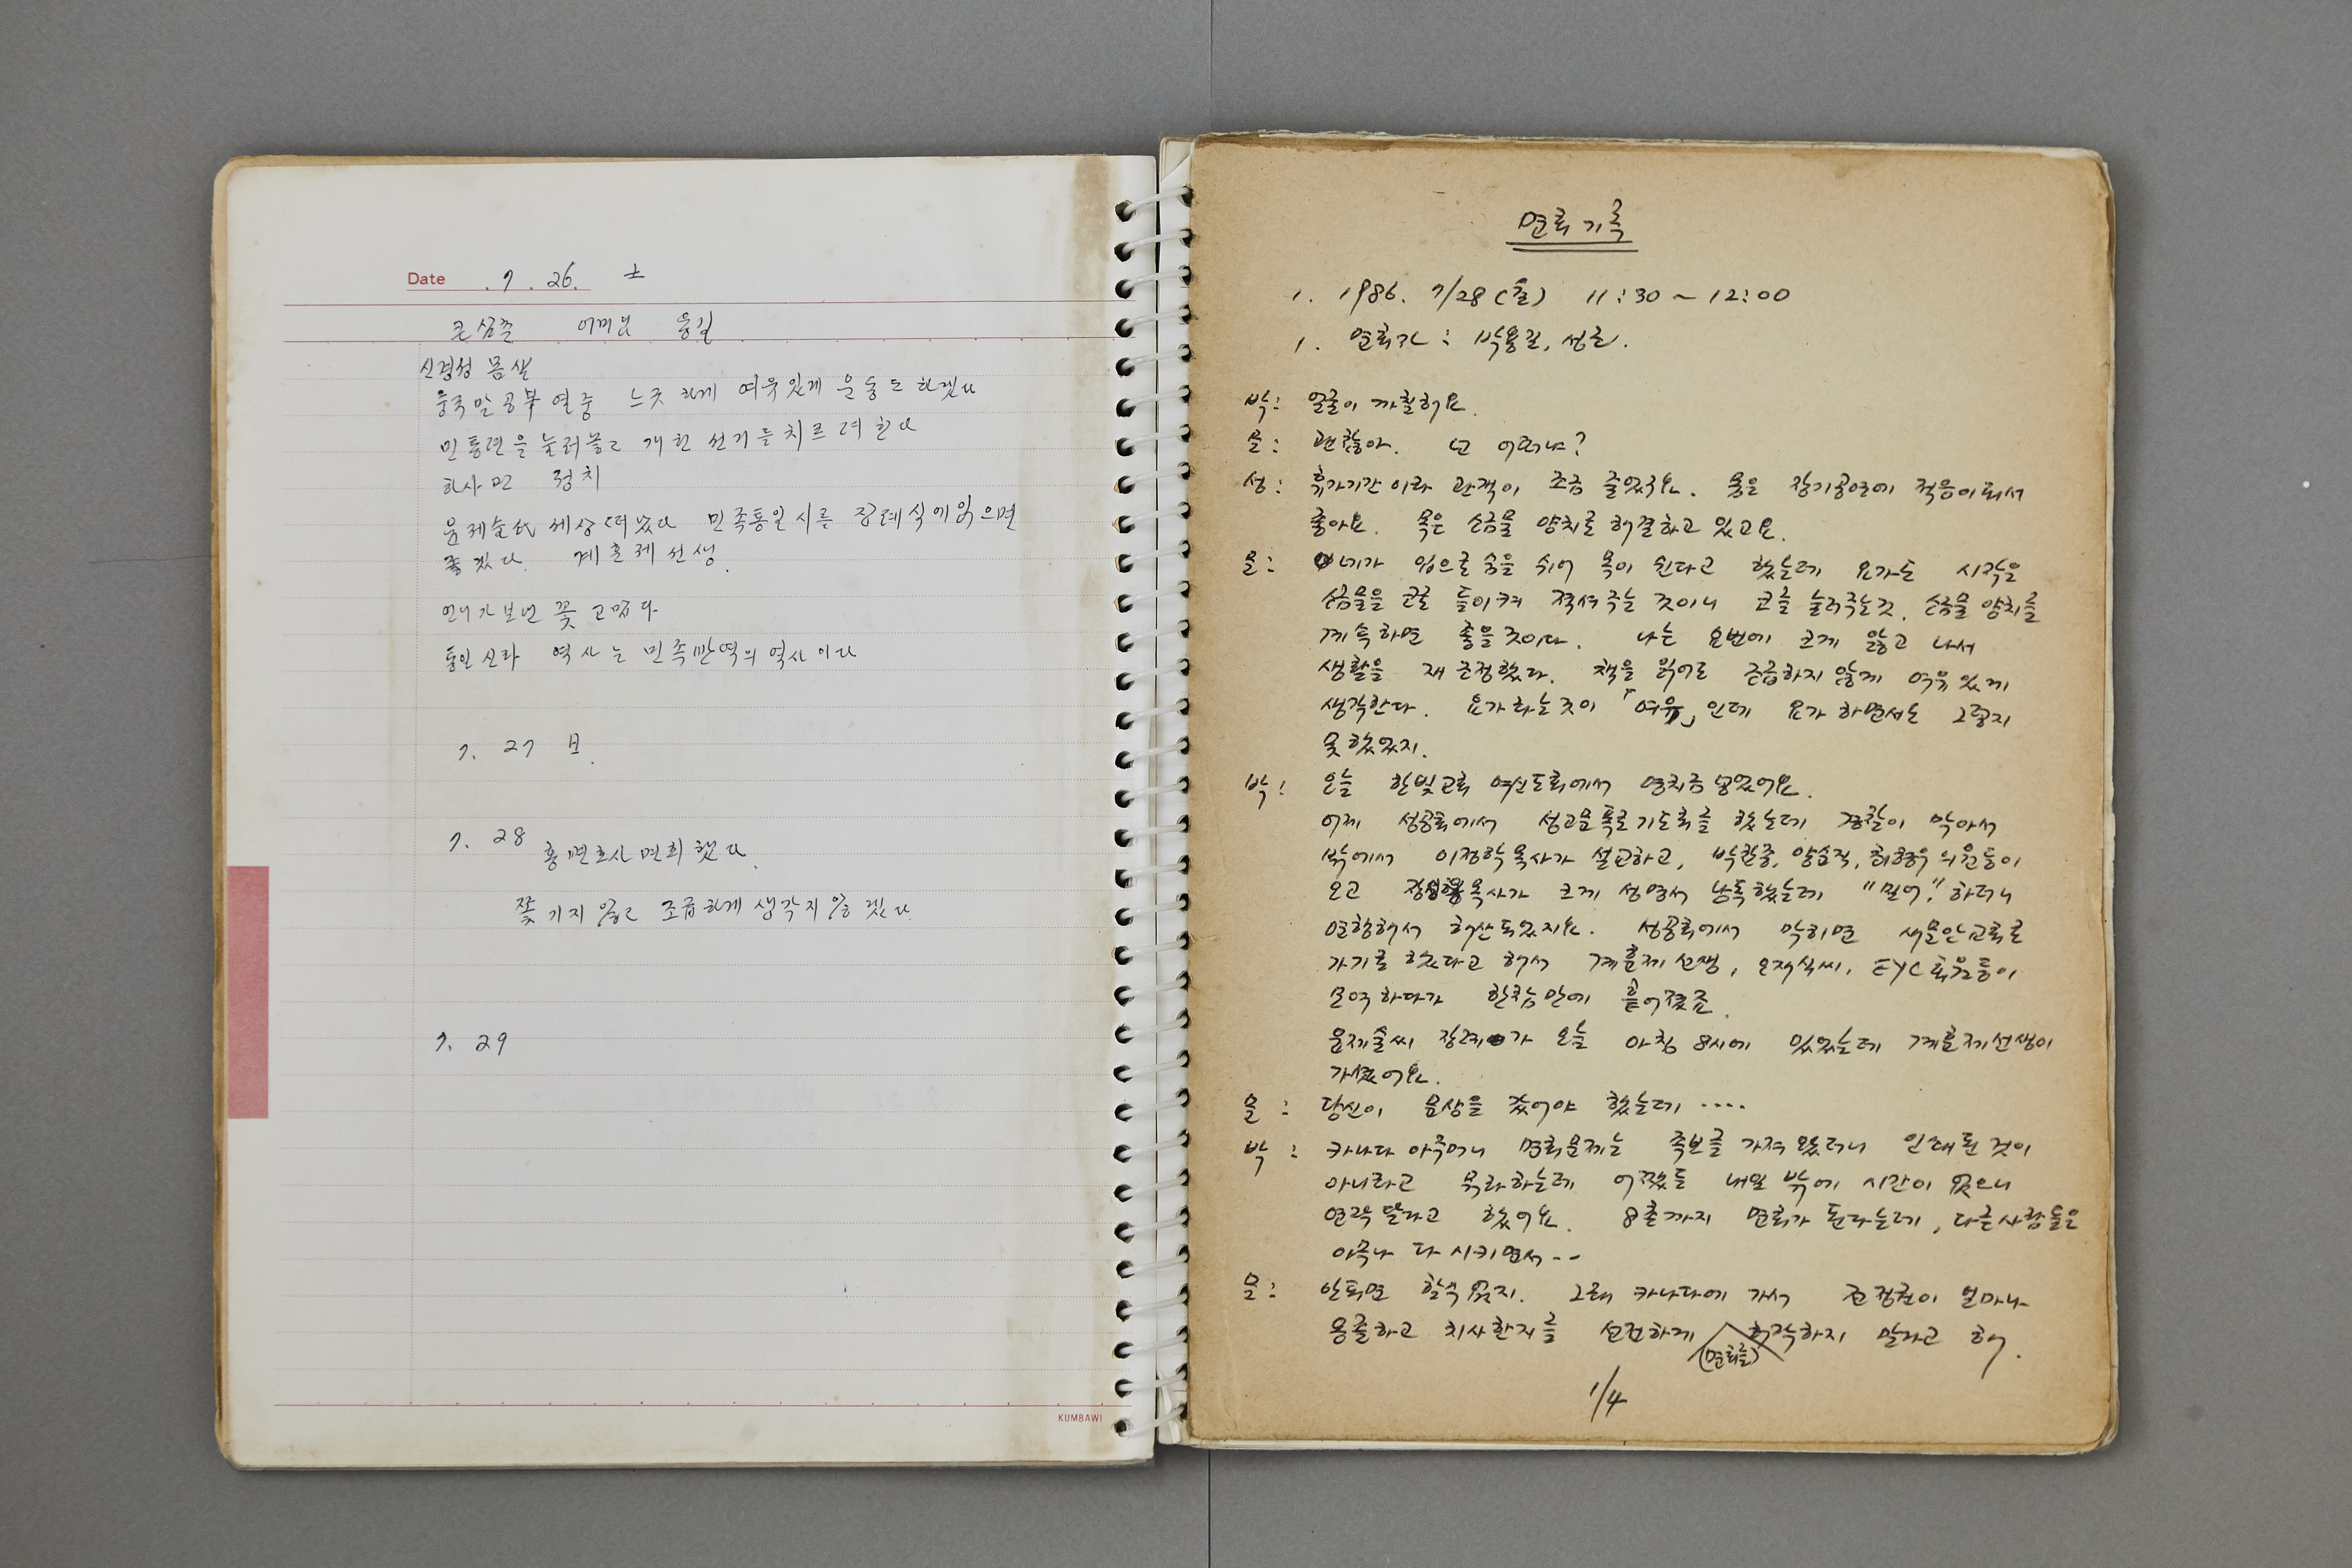 Date 7. 26. 土
큰삼촌 어머님 용길
신경성 몸살
중국말 공부 열중 느긋하게 여유있게 운동도 하겠다
민통련을 눌러놓고 개헌 선거를 치르려 한다
정치
윤제술氏 세상 떠났다 민족통일 시를 장례식에 읽으면
좋겠다 계훈제 선생.
언니가 보낸 꽃 고맙다
통일신라 역사는 민족반역의 역사이다
7. 27 日.
7. 28 홍변호사 면회했다.
쫓기지 않고 조급하게 생각지 않겠다.
7. 29
KUMBAWI
면회기록
1. 1986. 7/28(월) 11:30 ~ 12:00
1. 면회자 : 박용길, 성근.
박: 얼굴이 까칠해요.
문: 괜찮아. 넌 어떠냐?
성: 휴가기간이라 관객이 조금 줄었구요. 몸은 장기공연에 적응이 돼서
좋아요. 목은 소금물 양치로 해결하고 있고요.
문: 네가 입으로 숨을 쉬어 목이 쉰다고 했는데 요가는 시작을
소금물을 코로 들이켜 적셔주는 것이니 코를 눌러주는 것, 소금물 양치를
계속하면 좋을 것이다. 나는 요번에 크게 앓고 나서
생활을 재조정했다. 책을 읽어도 조급하지 않게 여유있게
생각한다. 요가하는 것이 「여유」인데 요가하면서는 그렇지
못했었지.
박: 오늘 한빛교회 여신도회에서 영치금 넣었어요.
어제 성공회에서 성고문폭로기도회를 했는데 경찰이 막아서
밖에서 이정학 목사가 설교하고, 박찬종, 양순직, 최형우 의원등이
오고 목사가 크게 성명서 낭독했는데 "밀어." 하더니
연행해서 해산되었지요. 성공회에서 막히면 새문안교회로
가기로 했다고 해서 계훈제 선생, 오재식씨, EYC 회원등이
모여 하다가 한참만에 흩어졌죠.
윤제술씨 장례가 오늘 아침 8시에 있었는데 계훈제 선생이
가셨어요.
문: 당신이 문상을 갔어야 했는데 ....
박: 카나다 아주머니 면회문제는 족보를 가져왔더니 인쇄된 것이
아니라고 뭐라하는데 어쨌든 내일 밖에 시간이 없으니
연락 달라고 했어요. 8촌까지 면회가 된다는데, 다른 사람들은
아무나 다 시키면서 --
문: 안되면 할 수 없지. 그래 카나다에 가서 전정권이 얼마나
옹졸하고 치사한지를 선전하게 (면회를) 허락하지 말라고 해.
1/4